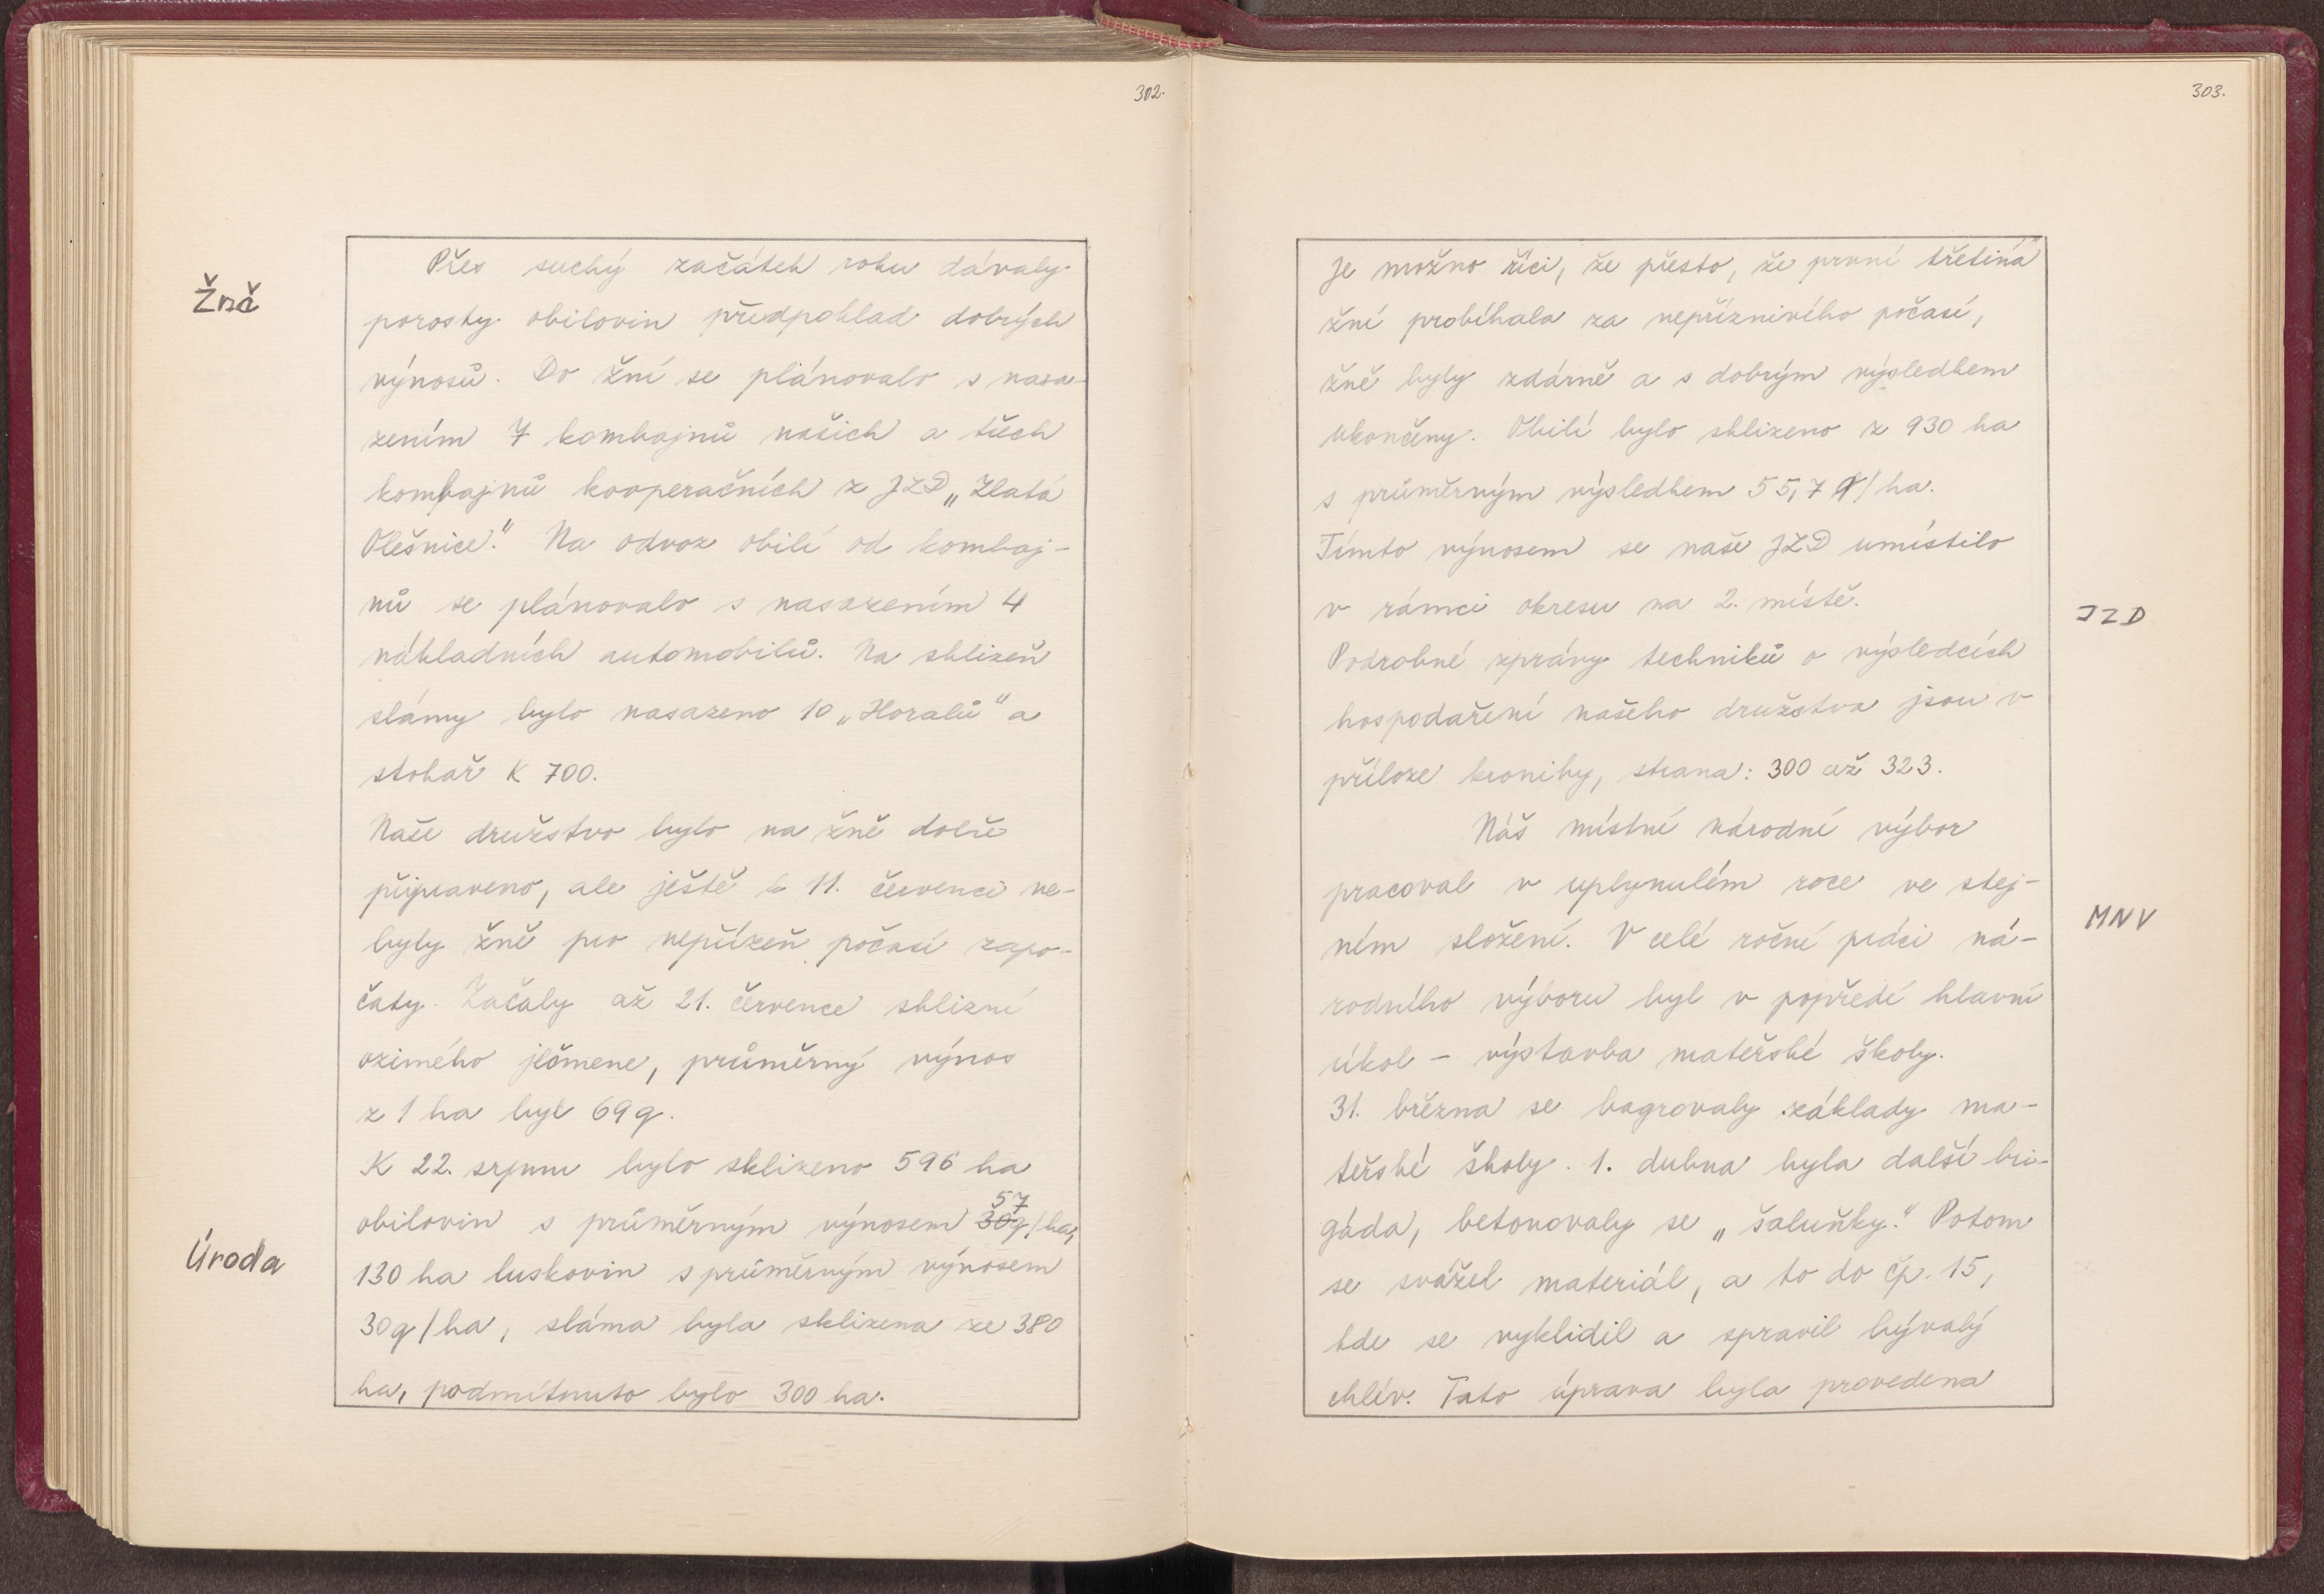 302.
Žně
Přes suchý začátek roku dávaly
porosty obilovin předpoklad dobrých
výnosů. Do žní se plánovalo s nasa-
zením 7 kombajnů našich a třech
kombajnů kooperačních z JZD „Zlatá
Olešnice." Na odvoz obilí od kombaj-
nů se plánovalo s nasazením 4
nákladních automobilů. Na sklizeň
slámy bylo nasazeno 10 „Horalů" a
stohař K 700.
Naše družstvo bylo na žně dobře
připraveno, ale ještě k 11. červenci ne-
byly žně pro nepřízeň počasí zapo-
čaty. Začaly až 21. července sklizní
ozimého ječmene, průměrný výnos
z 1 ha byl 69 q.
K 22. srpnu bylo sklizeno 596 ha
57
obilovin s průměrným výnosem 30q/ha,
Úroda
130 ha luskovin s průměrným výnosem
30q/ha, sláma byla sklizena ze 380
ha, podmítnuto bylo 300 ha.
303.
Je možno říci, že přesto, že první třetina
žní probíhala za nepříznivého počasí,
žně byly zdárně a s dobrým výsledkem
ukončeny. Obilí bylo sklizeno z 930 ha
s průměrným výsledkem 55,7 q/ha.
Tímto výnosem se naše JZD umístilo
v rámci okresu na 2. místě.
JZD
Podrobné zprávy techniků o výsledcích
hospodaření našeho družstva jsou v
příloze kroniky, strana: 300 až 323.
Náš místní národní výbor
pracoval v uplynulém roce ve stej-
MNV
ném složení. V celé roční práci ná-
rodního výboru byl v popředí hlavní
úkol – výstavba mateřské školy.
31. března se bagrovaly základy ma-
teřské školy. 1. dubna byla další bri-
gáda, betonovaly se „šaluňky." Potom
se svážel materiál, a to do čp. 15,
kde se vyklidil a spravil bývalý
chlév. Tato úprava byla provedena